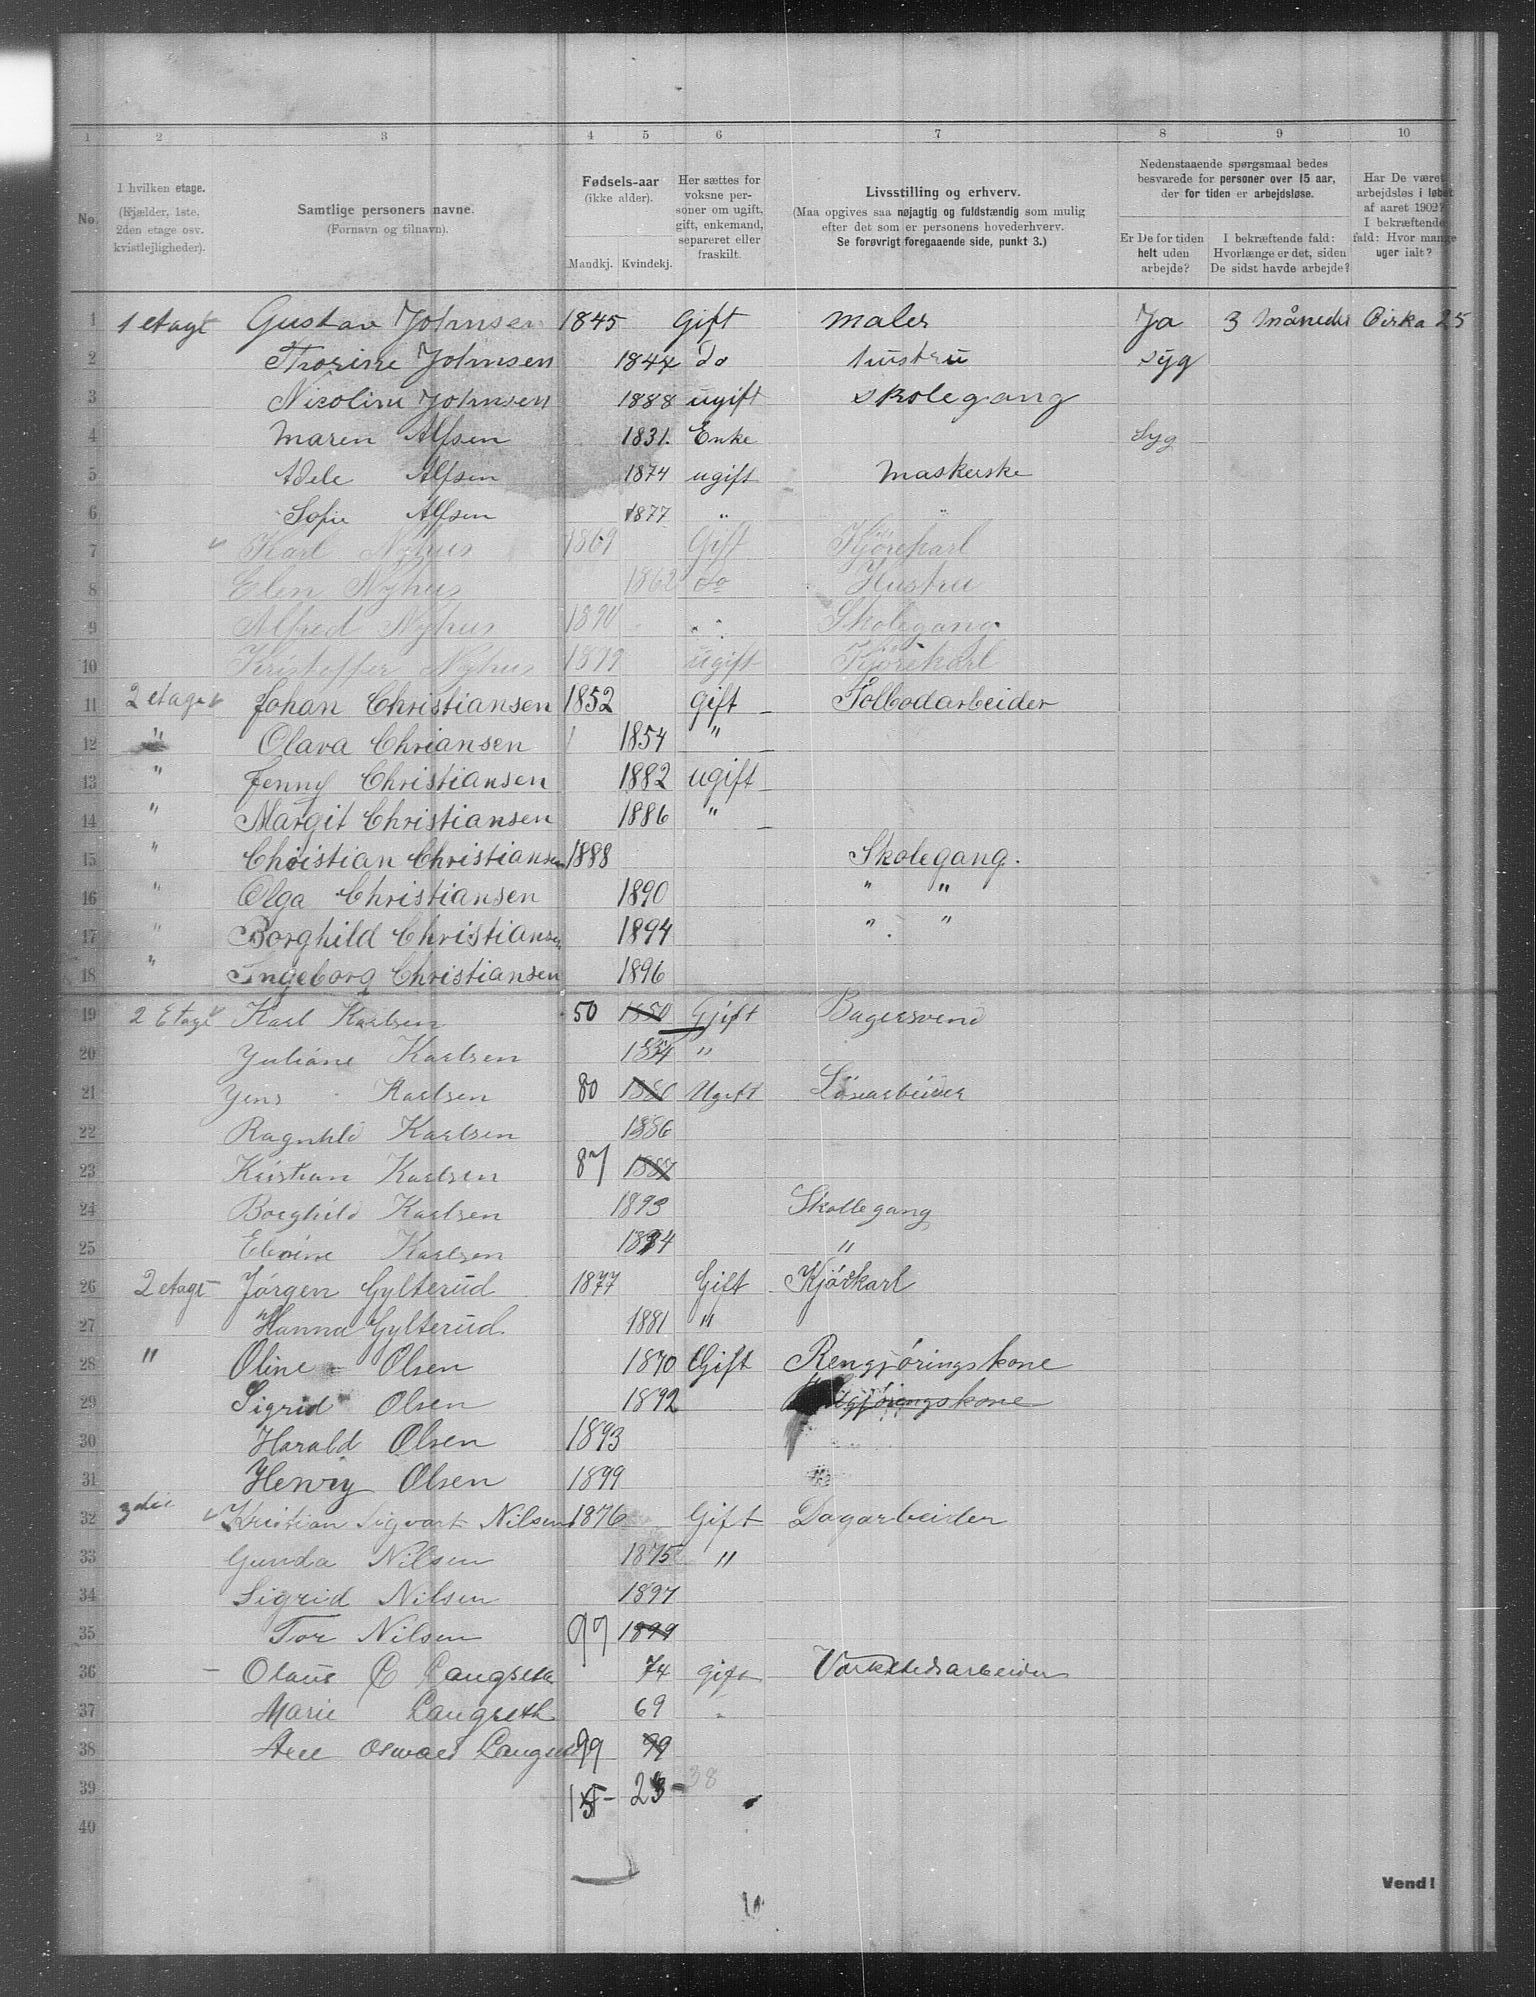 1 2 3 4 5 6 7 8 9 10
No.
I hvilken etage.
(Kjælder, 1ste,
2den etage osv.
kvistlejligheder).
Samtlige personers navne.
(Fornavn og tilnavn).
Fødsels-aar
(ikke alder).
Mandkj. Kvindekj.
Her sættes for
voksne per-
soner om ugift,
gift, enkemand,
separeret eller
fraskilt.
Livsstilling og erhverv.
(Maa opgives saa nøjagtig og fuldstændig som mulig
efter det som er personens hovederhverv.
Se forøvrigt foregaaende side, punkt 3.)
Nedenstaaende spørgsmaal bedes
besvarede for personer over 15 aar,
der for tiden er arbejdsløse.
Er De for tiden
helt uden
arbejde?
I bekræftende fald:
Hvorlænge er det, siden
De sidst havde arbejde?
Har De været
arbejdsløs i løbet
af aaret 1902?
I bekræftende
fald: Hvor mange
uger ialt?
1 1 etagt Gustav Johnsen 1845 Gift maler Ja 3 Måneder Cirka 25
2 Thorine Johnsen 1847 do hustru syg
3 Nicoline Johnsen 1888 ugift skolegang
4 Maren Alfsen 1831. Enke Syg
5 Adele Alfsen 1874 ugift Maskerske
6 Sofie Alfsen 1877 " "
7 Karl Nyhus 1869 Gift Kjørekarl
8 Elen Nyhus 1862 do Hustru
9 Alfred Nyhus 1890 " Skolegang
10 Kristoffer Nyhus 1879 ugift Kjørekarl
11 2 etage Johan Christiansen 1852 gift Tolbodarbeider
12 " Olava Chriansen 1854 "
13 " Jenny Christiansen 1882 ugift
14 " Margit Christiansen 1886 "
15 " Christian Christiansen 1888 Skolegang.
16 " Olga Christiansen 1890 " "
17 " Borghild Christiansen 1894 " "
18 " Ingeborg Christiansen 1896
19 2 Etage Karl Karlsen 50 1850 Gjift Bagersvend
20 Juliane Karlsen 1854 "
21 Jens Karlsen 80 1880 Ugift Løsarbeider
22 Ragnhild Karlsen 1886
23 Kristian Karlsen 87 1887
24 Borghild Karlsen 1893 Skollegang
25 Karlsen 1894 "
26 2 etage Jørgen Gylterud 1877 Gift Kjørkarl
27 Hanna Gylterud. 1881 "
28 " Oline Olsen 1870 Gift Rengjøringskone
29 Sigrid Olsen 1892 Rengjøringskone
30 Harald Olsen 1893
31 Henry Olsen 1899
32 3die Kristian Sigvart Nilsen 1876 Gift Dagarbeider
33 Gunda Nilsen 1875 "
34 Sigrid Nilsen 1897
35 Tor Nilsen 99 1899
36 Olaus C Langseth 74 gift Verkstedsarbeider
37 Marie Langseth 69 "
38 Osvald Langseth 99 99
39 15- 23- 38
40
Vend!